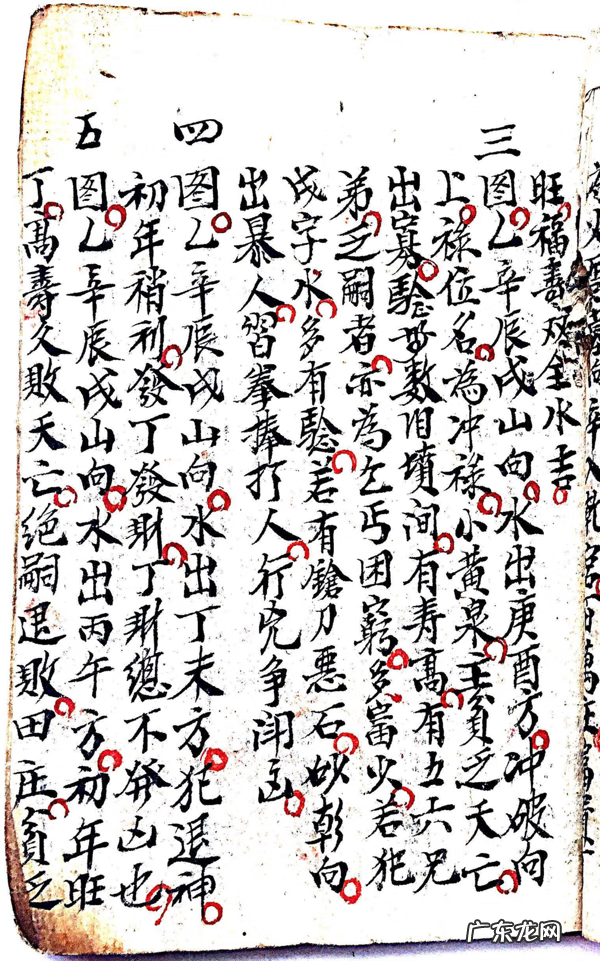 旺福壽双全水吉
三
图乙辛辰戌山向水出庚酉方冲破向
上禄位名為冲禄小黄泉主貧乏夭亡
出寡驗數旧墳间有寿高有五六兄
弟乏嗣者亦為乞丐困窮多富少若犯
戌字水多有驗若有鎗刀恶石砂彰向
出暴人習拳捧打人行兇争闹凶
四
图乙辛辰戌山向水出丁未方犯退神
初年稍利發丁發財丁財總不發凶也
五
图乙辛辰戌山向水出丙午方初年旺
丁高壽久敗夭亡绝嗣退敗田庄貧乏
广东龙网